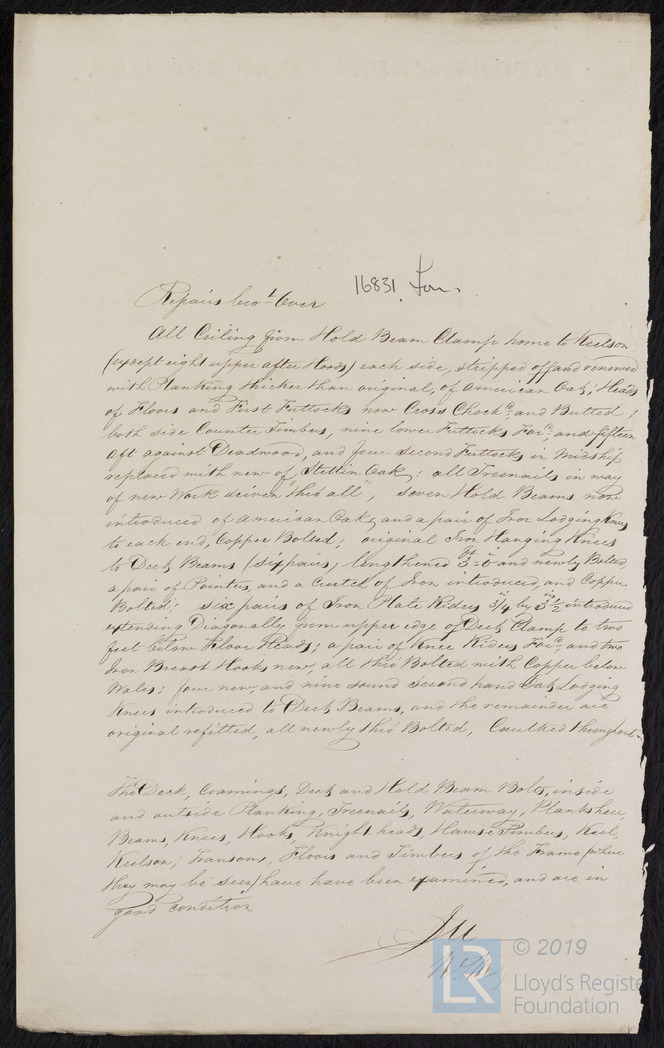 16831 Ion.
Repairs bro.t Over
All Ceiling from Hold Beam Clamp home to Keelson
(except eight upper after Hoods) each side, stripped off and renewed
with Planking thicker than original, of American Oak; Heads
of Floors and First Futtocks now Cross Chock.d and Butted;
both side Counter Timbers, nine lower Futtocks For.d and fifteen
aft against Deadwood, and four second Futtocks in Midship
replaced with new of Stettin Oak; all Treenails in way
of new Work driven "thro all", seven Hold Beams now
introduced of American Oak and a pair of Iron Lodging Knees
to each end, Copper Bolted; original Iron Hanging Knees
to Deck Beams (six pairs) lengthened 3 ft 0 i and newly Bolted,
a pair of Pointers and a Crutch of Iron introduced, and Copper
Bolted; six pairs of Iron Plate Riders 3/4 in by 3 1/2 in introduced
extending Diagonally from upper edge of Deck Clamp to two
feet below Floor Heads; a pair of Knee Riders For.d and two
Iron Breast Hooks new, all thro Bolted with Copper below
Wales; four new, and nine sound second hand Oak Lodging
Knees introduced to Deck Beams, and the remainder are
original refitted, all newly thro Bolted, Caulked throughout
The Deck, Comings, Deck and Hold Beam Bolts, inside
and outside Planking, Treenails, Waterway, Planksheer,
Beams, Knees, Hooks, Knight heads, Hawse Timbers, Keel,
Keelson, Transoms, Floors and Timbers of the Frame (where
they may be seen) have have been examined, and are in
good condition
© 2019
LR
Lloyd's Register
Foundation